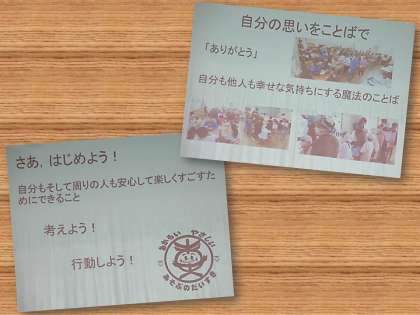 自分の思いをことばで
「ありがとう」
自分も他人も幸せな気持ちにする魔法のことば
さあ，はじめよう！
自分もそして周りの人も安心して楽しくすごすた
めにできること
考えよう！
行動しよう！
やさしい
あそぶのだいすき